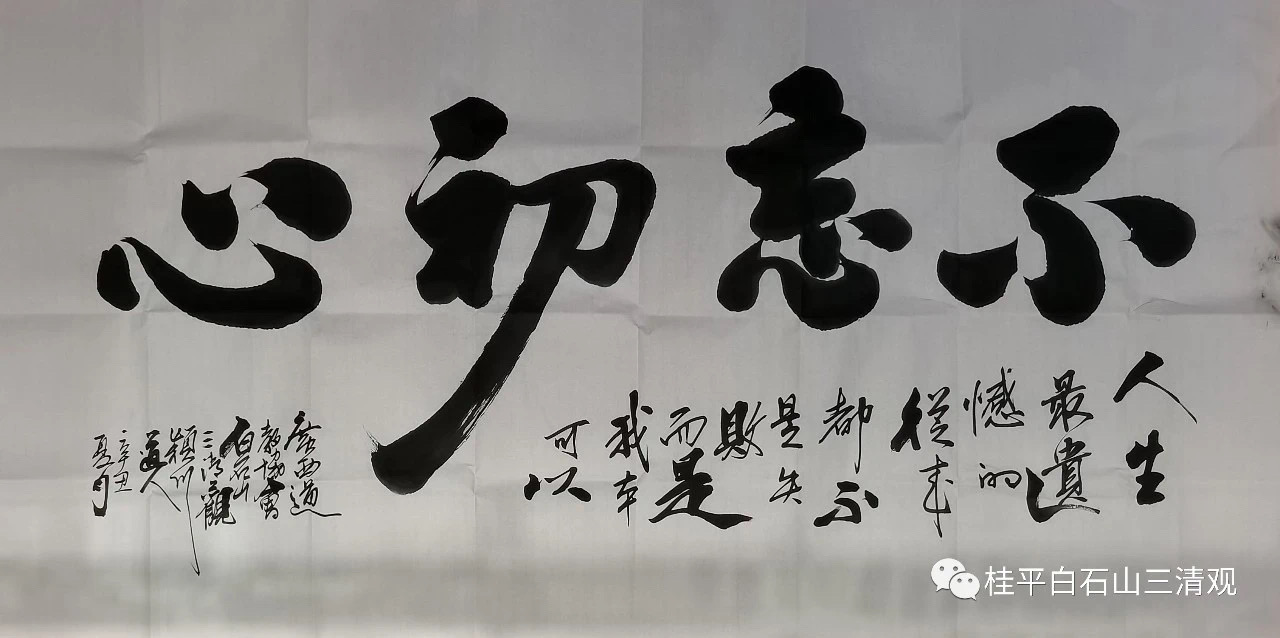 不忘初心
人生
最遺
憾的
從来
都不
是失
敗
而是
我本
可以
廣西道
教協會
白石山
三清觀
穎川
道人
辛丑
夏月
桂平白石山三清观